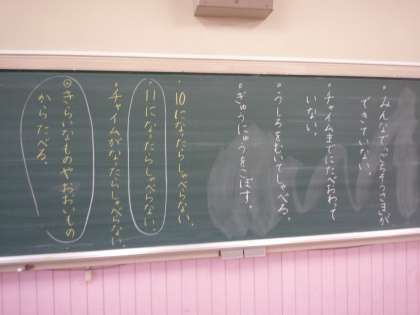 ・みんなでごちそうさまが
できていない。
・チャイムまでにたべおわって
いない。
・うしろをむいてしゃべる。
・ぎゅうにゅうをこぼす。
・10になったらしゃべらない。
・11になったらしゃべらない。
・チャイムがなったらしゃべらない。
◎きらいなものやおおいもの
からたべる。